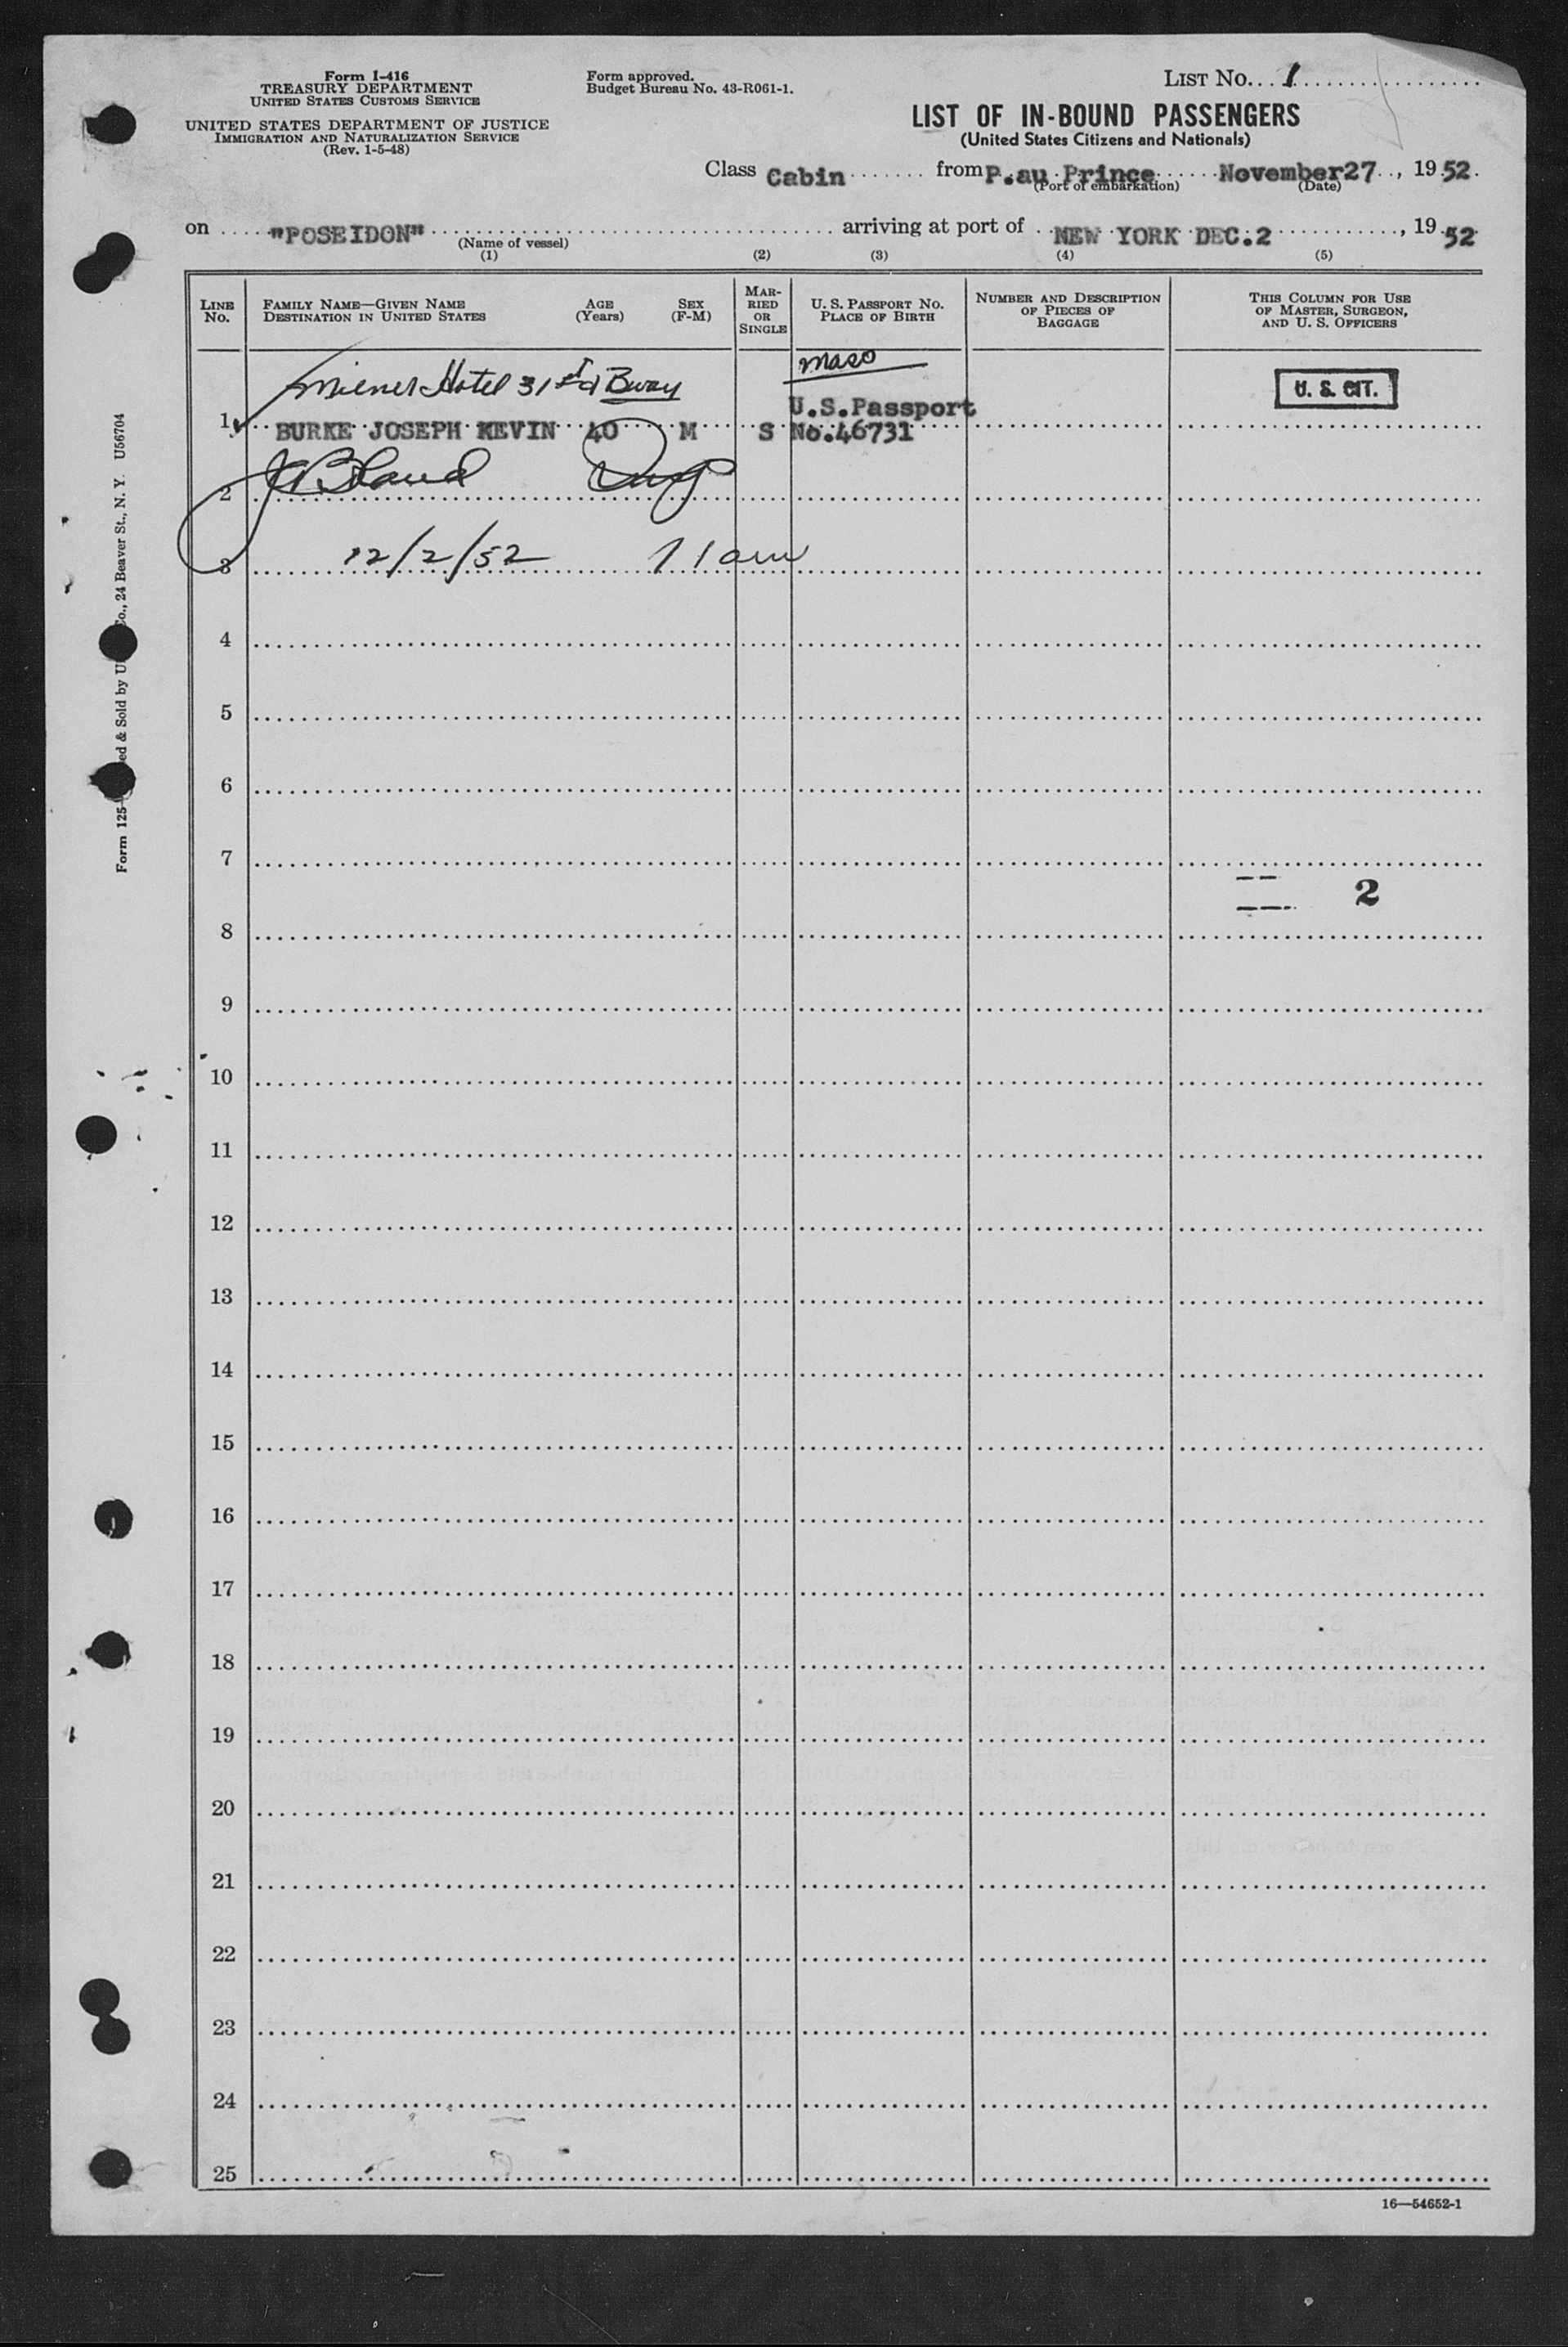 Form I-416
TREASURY DEPARTMENT
UNITED STATES CUSTOMS SERVICE
UNITED STATES DEPARTMENT OF JUSTICE
IMMIGRATION AND NATURALIZATION SERVICE
(Rev. 1-5-48)
Form approved.
Budget Bureau No. 43-R061-1.
LIST NO. 1
LIST OF IN-BOUND PASSENGERS
(United States Citizens and Nationals)
Class Cabin from P.au Prince November 27, 1952.
(Port of embarkation) (Date)
on "POSEIDON" arriving at port of NEW YORK DEC.2, 1952
(Name of vessel)
(1) (2) (3) (4) (5)
LINE NO.
FAMILY NAME—GIVEN NAME
DESTINATION IN UNITED STATES
AGE (Years)
SEX (F-M)
MARRIED OR SINGLE
U. S. PASSPORT NO.
PLACE OF BIRTH
NUMBER AND DESCRIPTION OF PIECES OF BAGGAGE
THIS COLUMN FOR USE OF MASTER, SURGEON, AND U. S. OFFICERS
Milner Hotel 31st & Bway
Mass
U. S. CIT.
U.S.Passport
1 BURKE JOSEPH KEVIN 40 M S No.46731
2
3 12/2/52 11am
4
5
6
7
2
8
9
10
11
12
13
14
15
16
17
18
19
20
21
22
23
24
25
16—54652-1
Form 125
ed & Sold by U
Co., 24 Beaver St., N. Y. U56704